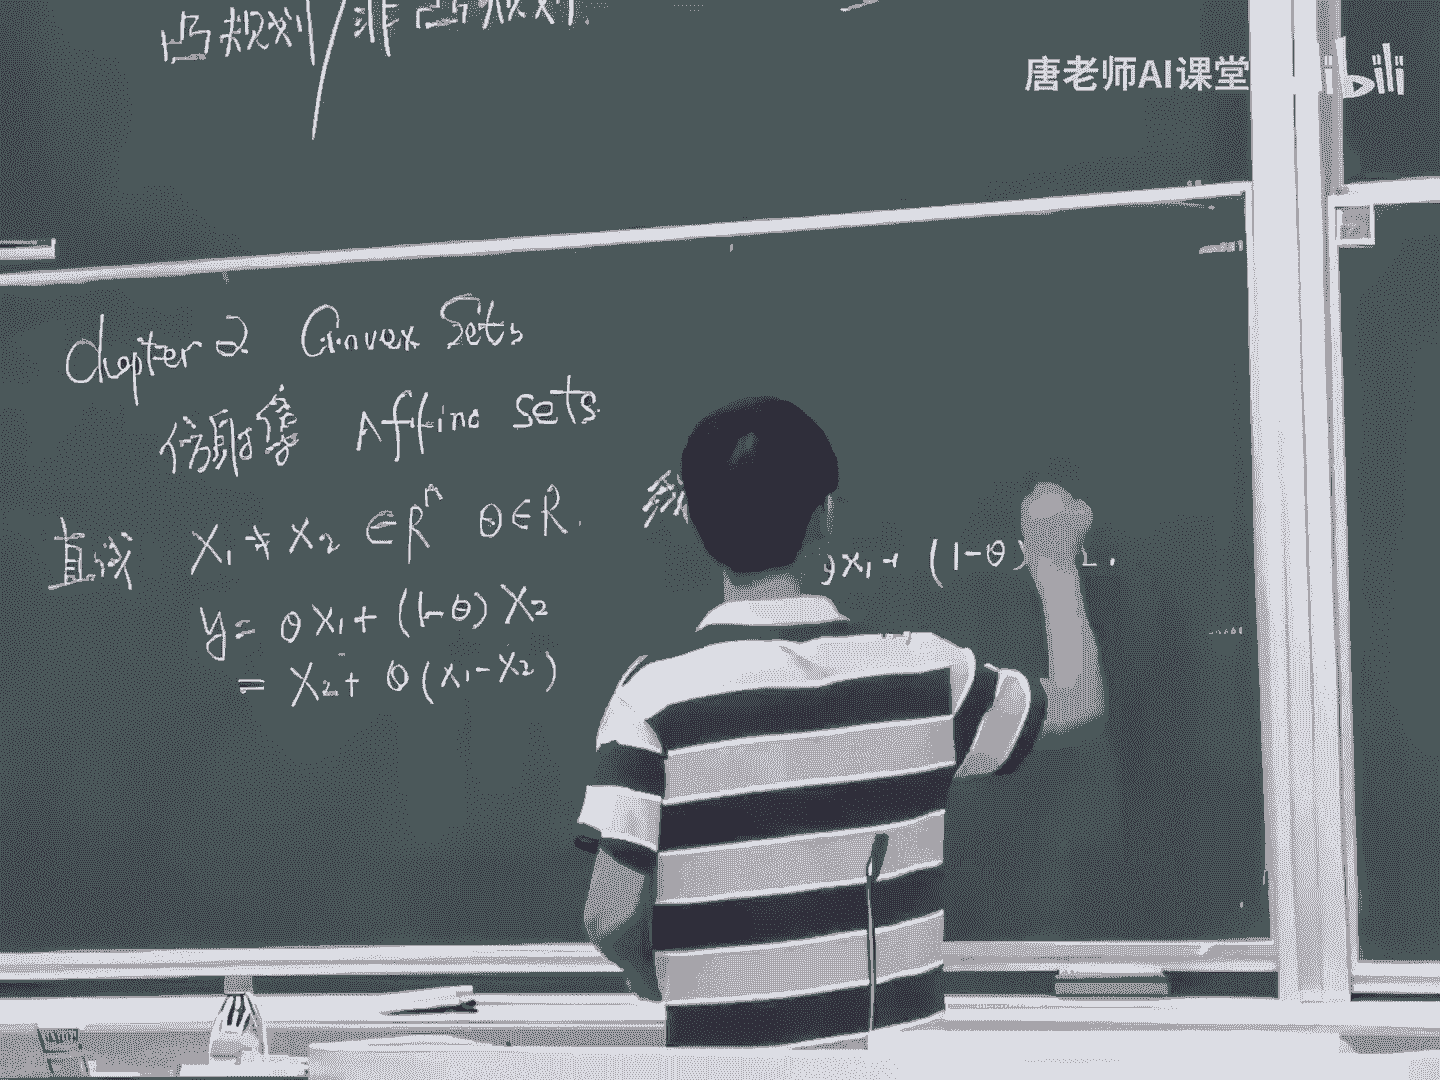 凸规划/非凸规划.
唐老师AI课堂 bilibili
Chapter 2 Convex Sets
仿射集 Affine sets
直线 X₁ ≠ X₂ ∈ Rⁿ θ∈R.
线
y = θX₁ + (1-θ) X₂
θX₁ + (1-θ)
= X₂ + θ(X₁-X₂)